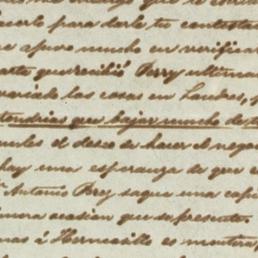 hacerlo para darle tu contesta
se apure mucho en verificar
carta que recibió Perry ultima
variado las cosas en Londres, y
tendrias que bajar mucho de t
el deseo de hacer el nego
hay una esperanza de que e
Antonio Rey saque una cap
primera ocasion que se presente.
mas á Hermosillo es mentira,